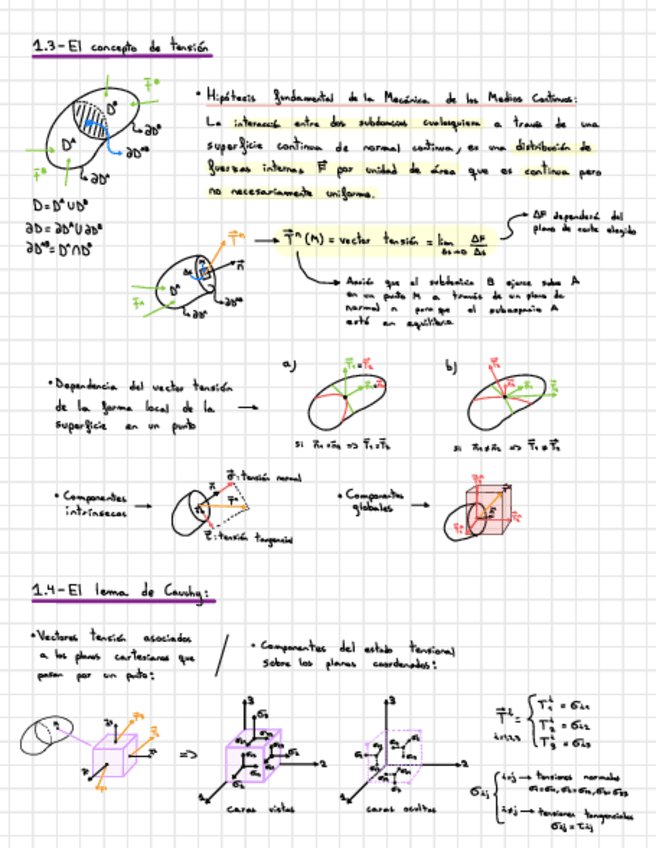 1.3-El concepto de tensión
• Hipótesis fundamental de la Mecánica de los Medios Continuos:
La interacción entre dos subdominios cualesquiera a través de una
superficie continua de normal continua, es una distribución de
fuerzas internas F por unidad de área que es continua pero
no necesariamente uniforme.
D=DᴬUDᴮ
∂D=∂DᴬU∂Dᴮ
∂Dᴬᴮ=Dᴬ∩Dᴮ
T⃗ⁿ(M) = vector tensión = lim ΔF/Δs
Δs→0
ΔF dependerá del
plano de corte elegido
Acción que el subdominio B ejerce sobre A
en un punto M a través de un plano de
normal n para que el subespacio A
esté en equilibrio
a)
b)
• Dependencia del vector tensión
de la forma local de la
superficie en un punto
si n⃗₁=n⃗₂ => T⃗₁=T⃗₂
si n⃗₁≠n⃗₂ => T⃗₁≠T⃗₂
• Componentes
intrínsecas
σ⃗: tensión normal
τ⃗: tensión tangencial
• Componentes
globales
1.4-El lema de Cauchy:
• Vectores tensión asociados
a los planos cartesianos que
pasan por un punto:
• Componentes del estado tensional
sobre los planos coordenados:
=>
caras vistas
caras ocultas
T₁ⁱ = σi₁
T₂ⁱ = σi₂
T₃ⁱ = σi₃
i=1,2,3
σij
i=j → tensiones normales
i≠j → tensiones tangenciales
σij = τij